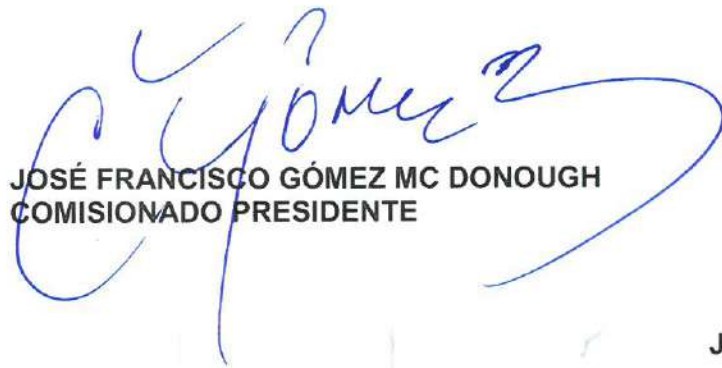 Gómez
JOSÉ FRANCISCO GÓMEZ MC DONOUGH
COMISIONADO PRESIDENTE
J